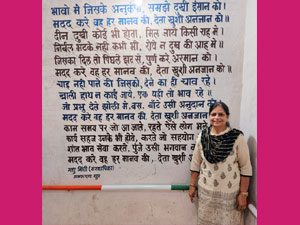 भावों में जिसके अनुकंपा, समझे दुखी इंसान को।
मदद करे वह हर मानव की, देता खुशी अनजान को॥
दीन दुखी कोई भी होता, मिल जाये किसी राह में।
निर्बल भटके नहीं कभी भी, रोये न दुख की आह में॥
जिसका दिल तो पिघले झट से, पूर्ण करे अरमान को।
मदद करे वह हर मानव की, देता खुशी अनजान को॥
चाह नहीं पाने की जिसको, देने का ही चाव रहे।
खाली हाथ न कोई जाये, एक यही तो भाव रहे॥
जो प्रभु देते झोली में बस, बाँटे उसी अनुदान को।
मदद करे वह हर मानव की, देता खुशी अनजान को॥
काम सभी पर जो आ जाते, रहते ऐसे लोग
कार्य सहज उनके भी होते, करते जो सहयोग
सेवा करते, पुजे उसी भगवान
मदद करे वह हर मानव की, देता खुशी